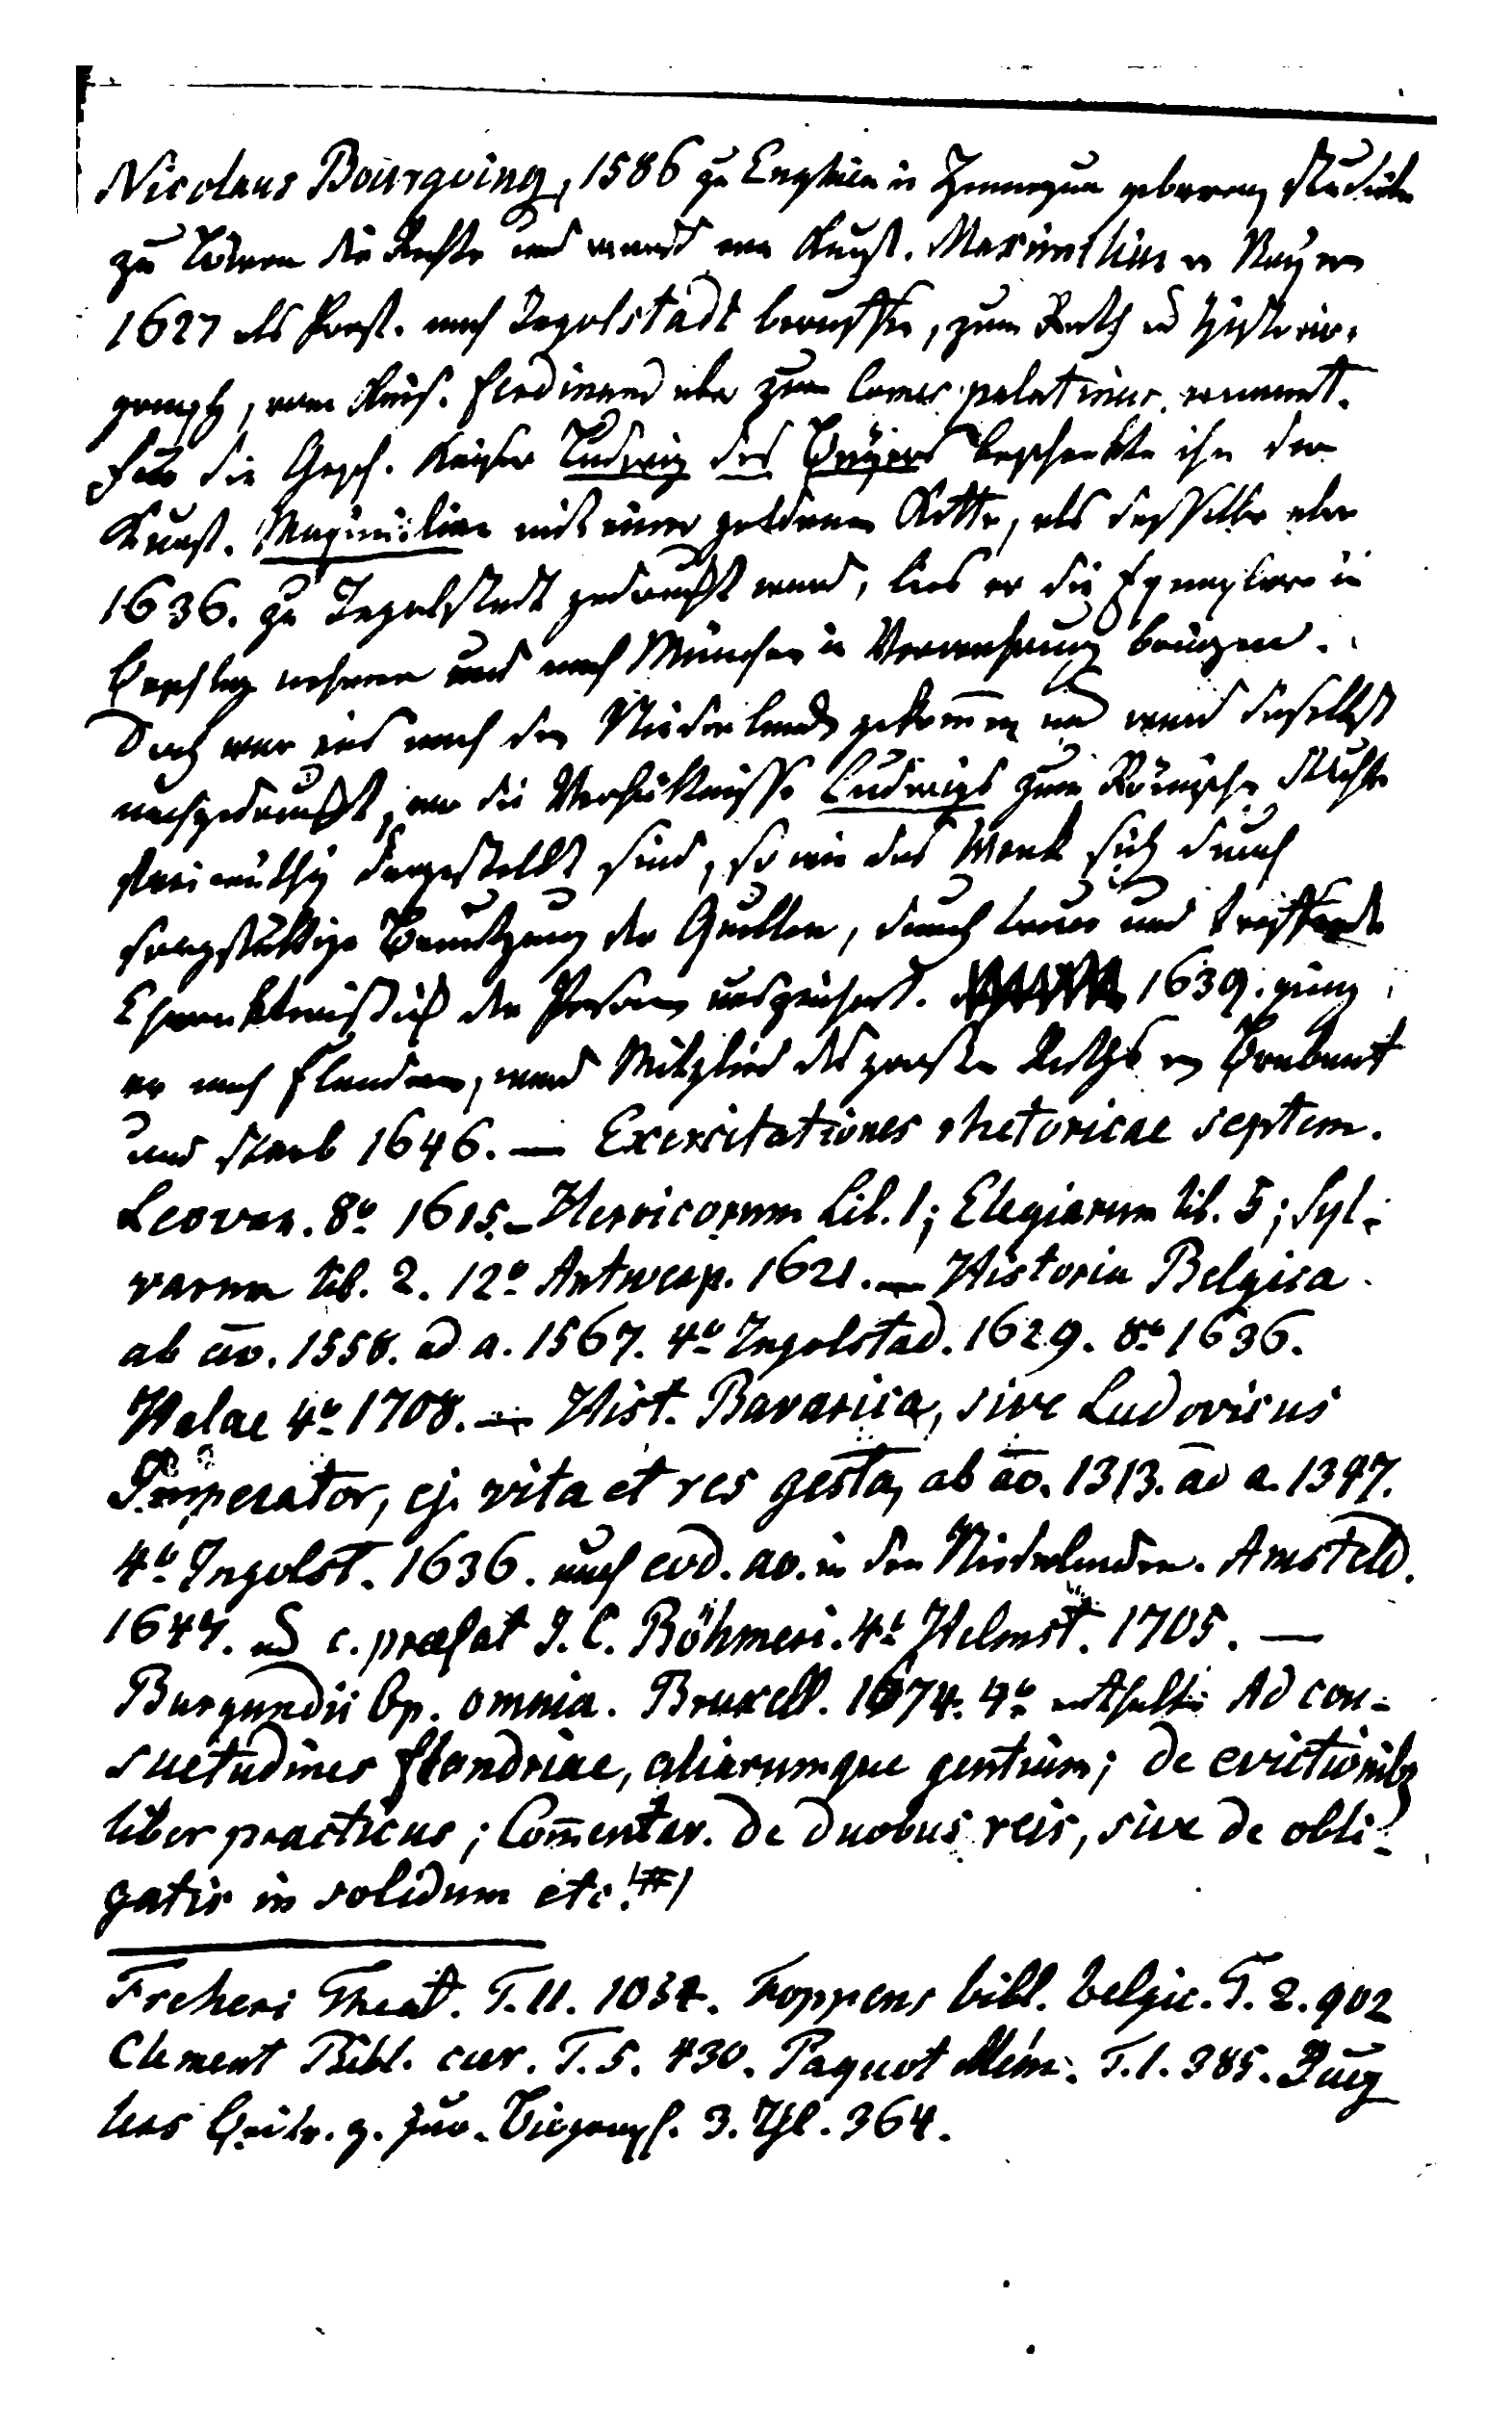 Nicolaus Bourgoing, 1586 zu Enghien in Hennegau geboren, studirte
zu Löwen die Rechte und ward vom Kurfst. Maximilian v Bayern
1627 als Prof. nach Ingolstadt beruffen, zum Rath und Historio-
graph, vom Kais. Ferdinand aber zum Comes palatinus ernannt.
Für die Gesch. Kaiser Ludwig des Bayers beschenkte ihn der
Kurfst. Maximilian mit einer goldenen Kette, als dasselbe aber
1636. zu Ingolstadt gedruckt ward, lies er die Exemplare in
Beschlag nehmen und nach München in Verwahrung bringen.
Doch war eins nach den Niederlanden gekom̄en und ward daselbst
nachgedruckt, wo die Verhältnisse Ludwigs zum Römischen Stuhle
freimüthig dargestellt sind, so wie das Werk sich durch
sorgfältige Benutzung der Quellen, durch treue und treffende
Charakteristik der Person auszeichnet. 1639. ging
er nach Flandern, ward Mitglied des großen Raths in Brabant
und starb 1646. — Exercitationes rhetoricae septem.
Leovar. 8º 1615. — Heroicorum Lib. 1; Elegiarum lib. 5; Syl-
varum lib. 2. 12º Antwerp. 1621. — Historia Belgica
ab āo. 1558. ad a. 1567. 4º Ingolstad. 1629. 8º 1636.
Halae 4º 1708. — Hist. Bavarica, sive Ludovicus
Imperator, ej. vita et res gesta, ab āo. 1313. ad a. 1347.
4º Ingolst. 1636. auch eod. ao. in den Niederlanden. Amsteld.
1647. ed c. præfat J. C. Böhmeri. 4º Helmst. 1705. —
Burgundii Op. omnia. Bruxell. 1674. 4º enthalten Ad con-
suetudines Flandriae, aliarumque gentium; de evictionib9
liber practicus; Com̄entar. de duobus reis, sive de obli-
gatis in solidum etc. #)
Freheri Theat. T. II. 1037. Foppens bibl. belgic. T. 2. 902
Clement Bibl. cur. T. 5. 430. Paquot Mém. T. 1. 385. Jug
lers Beitr. z. jur. Biograph. 3. Thl. 364.